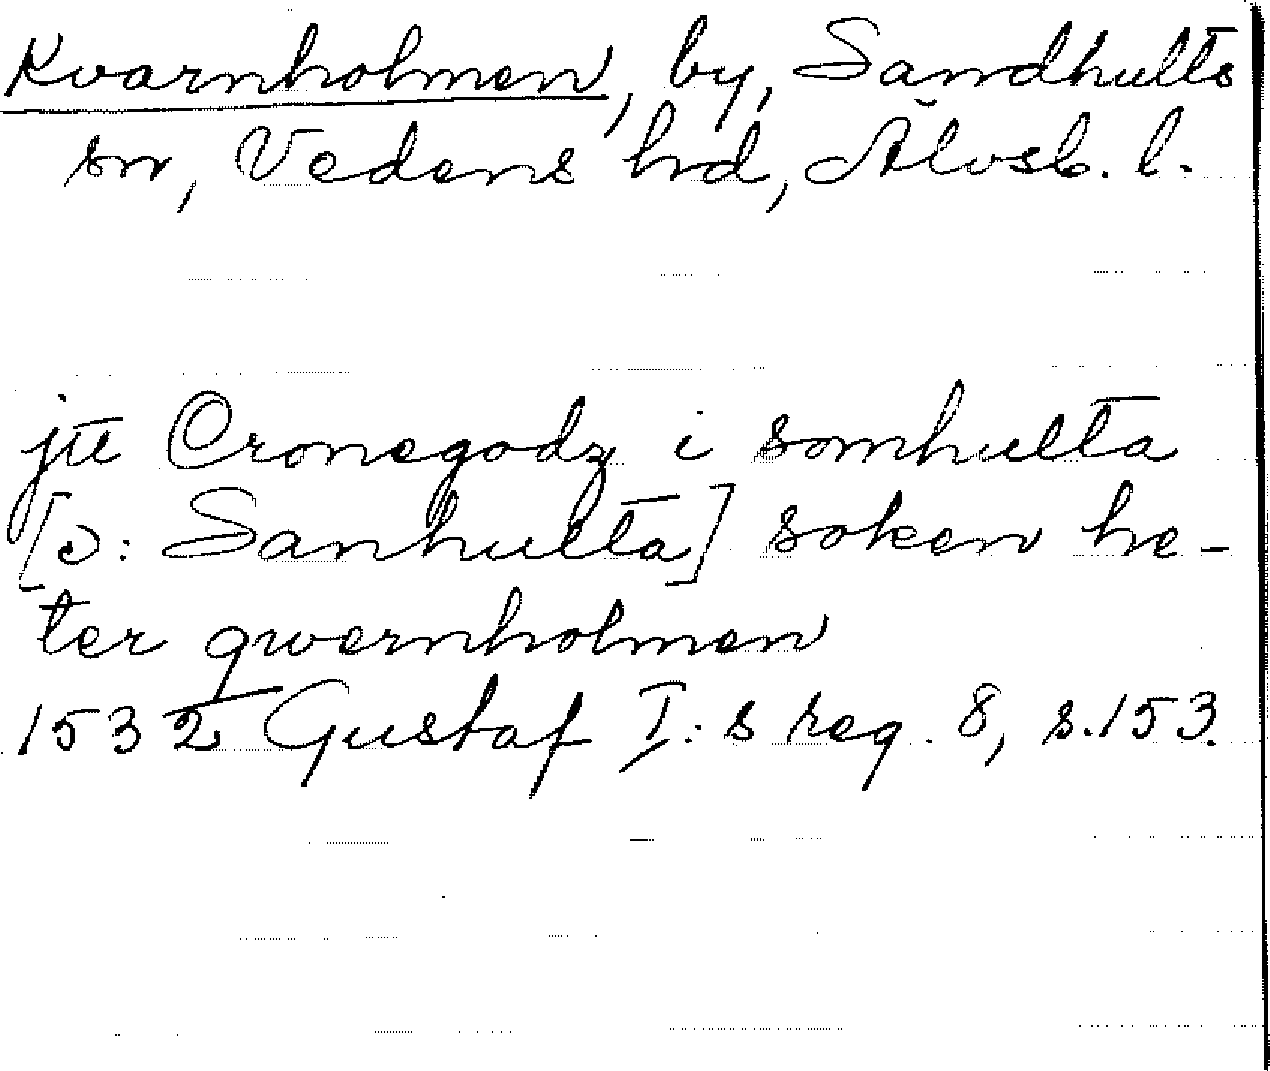 Kvarnholmen, by, Sandhults
sn, Vedens hrd, Älvsb. l.
jtt Cronegodz i somhulta
[ɔ: Sanhulta] soken he-
ter qwernholmen
1532 Gustaf I:s reg. 8, s.153.